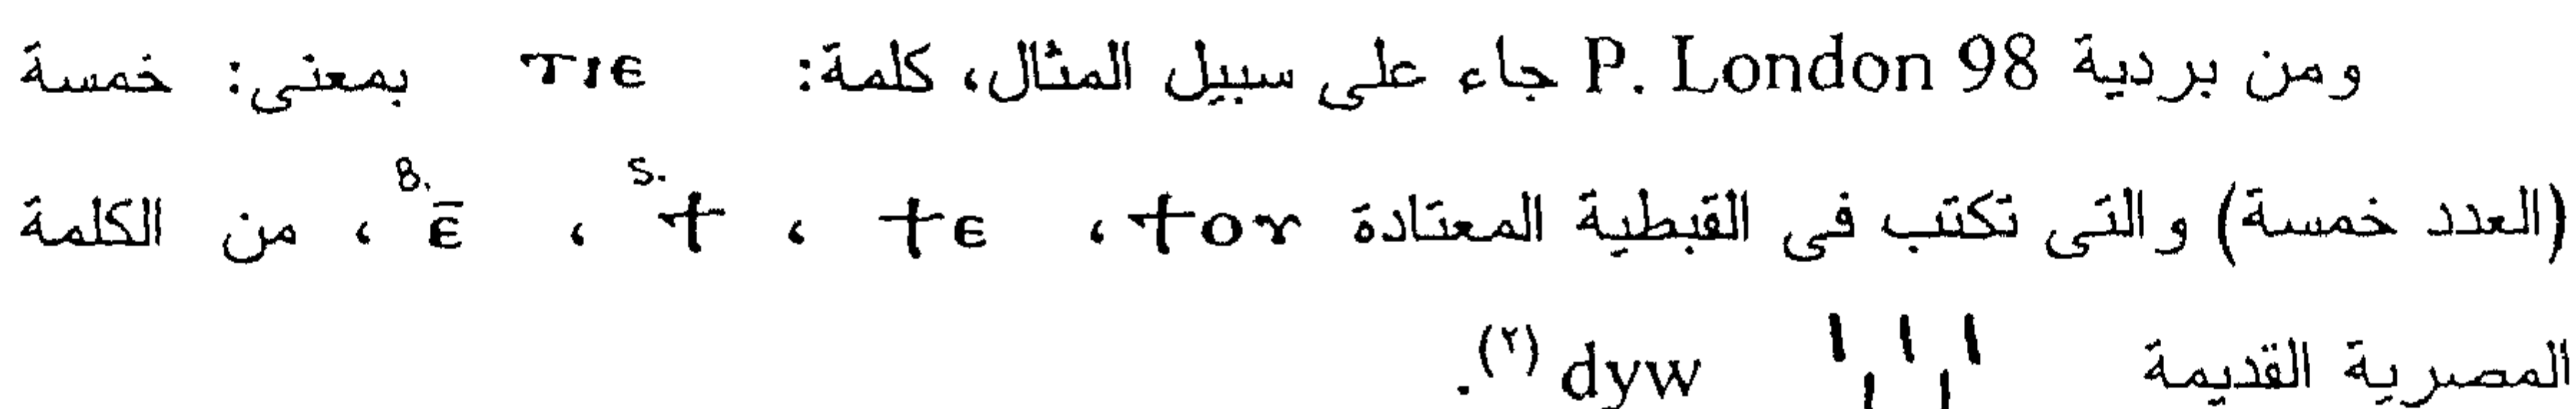 ومن بردية P. London 98 جاء على سبيل المثال، كلمة: ⲧⲓⲉ بمعنى: خمسة
(العدد خمسة) والتى تكتب فى القبطية المعتادة ϯⲟⲩ، ϯⲉ ، S. ϯ ، B. ⲉ̅ ، من الكلمة
المصرية القديمة ııııı dyw (٢).